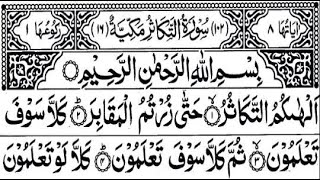 اٰیَاتُهَا ۸ (۱۰۲) سُوْرَةُ التَّكَاثُرِ مَكِّیَّةٌ (۱۶) رُكُوْعُهَا ۱
بِسْمِ اللّٰهِ الرَّحْمٰنِ الرَّحِیْمِ
اَلْهٰىكُمُ التَّكَاثُرُ ۙ۱ حَتّٰى زُرْتُمُ الْمَقَابِرَ ؕ۲ كَلَّا سَوْفَ
تَعْلَمُوْنَ ۙ۳ ثُمَّ كَلَّا سَوْفَ تَعْلَمُوْنَ ؕ۴ كَلَّا لَوْ تَعْلَمُوْنَ